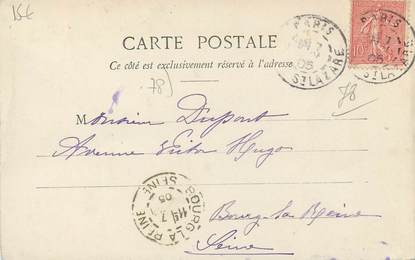 15€
CARTE POSTALE
Ce côté est exclusivement réservé à l'adresse
78
78
PARIS
05
ST LAZARE
PARIS
05
ST LAZARE
10
Monsieur Dupont
Avenue Victor Hugo
Bourg-la-Reine
Seine
BOURG LA REINE
SEINE
05